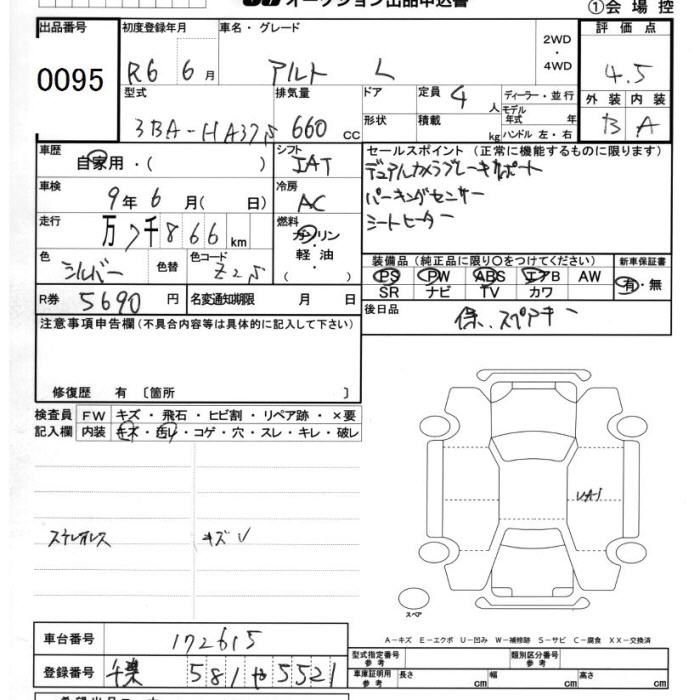 オークション出品申込書
①会場控
出品番号 初度登録年月 車名・グレード 2WD・4WD 評価点
0095 R6 6月 アルト L 4.5
型式 排気量 ドア 定員 4人 ディーラー・並行 外装 内装
3BA-HA37S 660cc 形状 積載 kg モデル年式 年 ハンドル 左・右 B A
車歴 自家用・( ) シフト IAT セールスポイント(正常に機能するものに限ります)
デュアルカメラブレーキサポート
車検 9年6月( 日) 冷房 AC パーキングセンサー
シートヒーター
走行 万7千866km 燃料 ガソリン・軽油・( )
色 シルバー 色替 色コード Z2S 装備品(純正品に限り○をつけてください) 新車保証書
PS PW ABS エアB AW 有・無
SR ナビ TV カワ
R券 5690円 名変通知期限 月 日 後日品 保、スペアキー
注意事項申告欄(不具合内容等は具体的に記入して下さい)
修復歴 有 〔箇所 〕
検査員 FW キズ・飛石・ヒビ割・リペア跡・×要
記入欄 内装 キズ・汚レ・コゲ・穴・スレ・キレ・破レ
ステレオレス キズU
スペア
A-キズ E-エクボ U-凹み W-補修跡 S-サビ C-腐食 XX-交換済
車台番号 172615 型式指定番号 参考 類別区分番号 参考
登録番号 千葉 581 や 5521 車庫証明用 参考 長さ cm 幅 cm 高さ cm